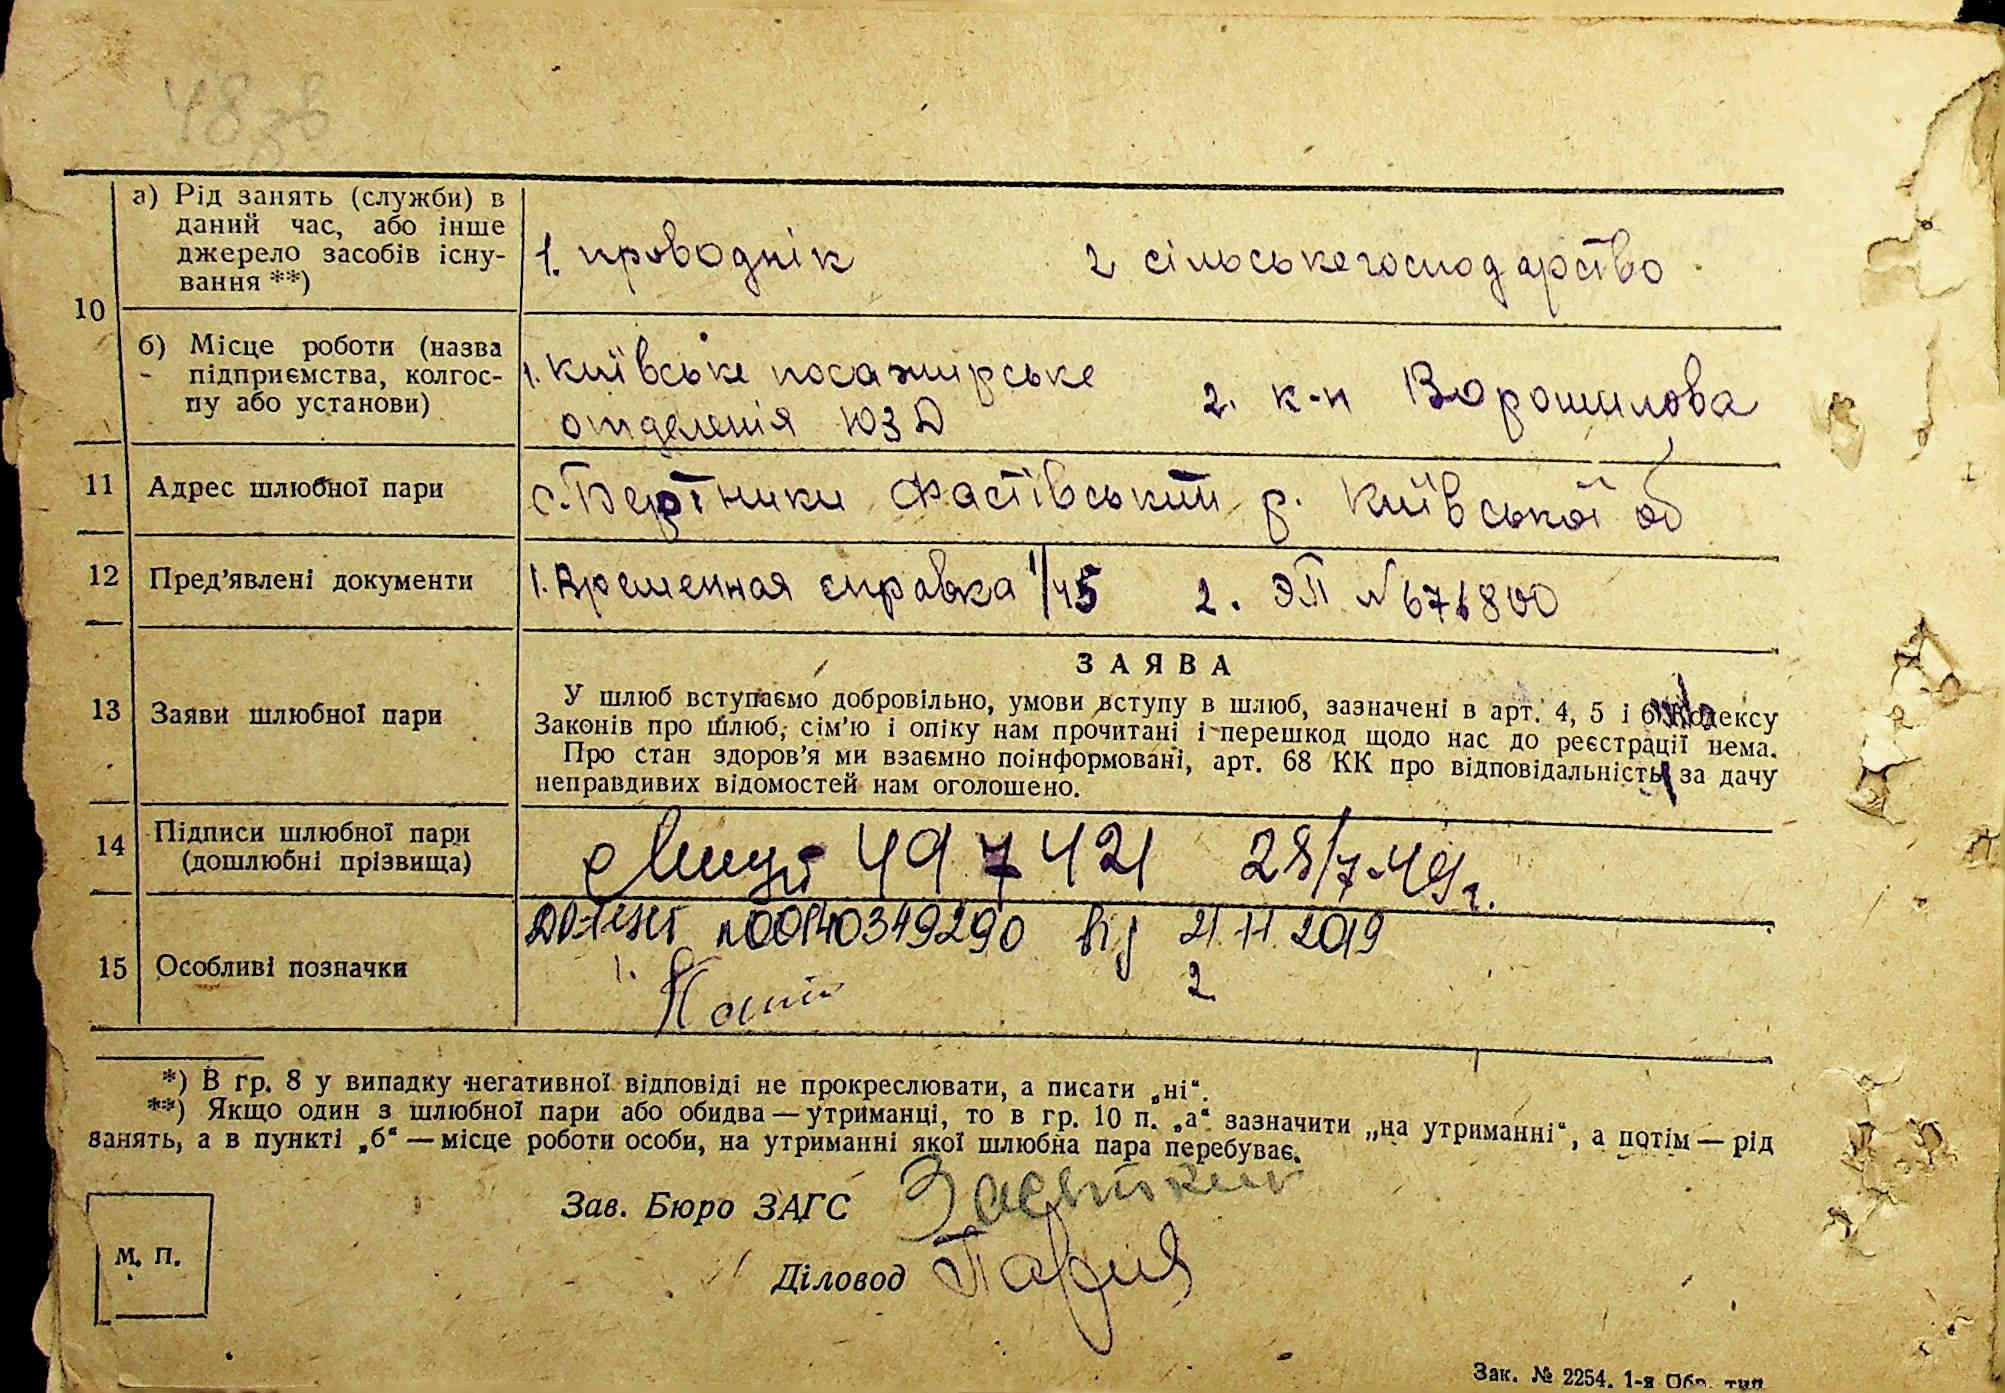 48 зв
а) Рід занять (служби) в
даний час, або інше
джерело засобів існу-
вання **)
1. проводнік 2 сількегосподарство
10
б) Місце роботи (назва
підприємства, колгос-
пу або установи)
1. Київське посажирське
отделенія ЮЗД
2. к-п Ворошилова
11 Адрес шлюбної пари
Фастівський р. Київської об
12 Пред'явлені документи
1. Временная справка 1/45 2. ЭП №676800
ЗАЯВА
13 Заяви шлюбної пари
У шлюб вступаємо добровільно, умови вступу в шлюб, зазначені в арт. 4, 5 і 6 Кодексу
Законів про шлюб, сім'ю і опіку нам прочитані і перешкод щодо нас до реєстрації нема.
Про стан здоров'я ми взаємно поінформовані, арт. 68 КК про відповідальність за дачу
неправдивих відомостей нам оголошено.
14 Підписи шлюбної пари
(дошлюбні прізвища)
497421 28/7-49г.
№00140349290 від 21.11.2019
15 Особливі позначки
1. 2
*) В гр. 8 у випадку негативної відповіді не прокреслювати, а писати „ні“.
**) Якщо один з шлюбної пари або обидва — утриманці, то в гр. 10 п. „а“ зазначити „на утриманні“, а потім — рід
занять, а в пункті „б“ — місце роботи особи, на утриманні якої шлюбна пара перебуває.
Зав. Бюро ЗАГС
М. П.
Діловод
Зак. № 2254. 1-я Обр. тип